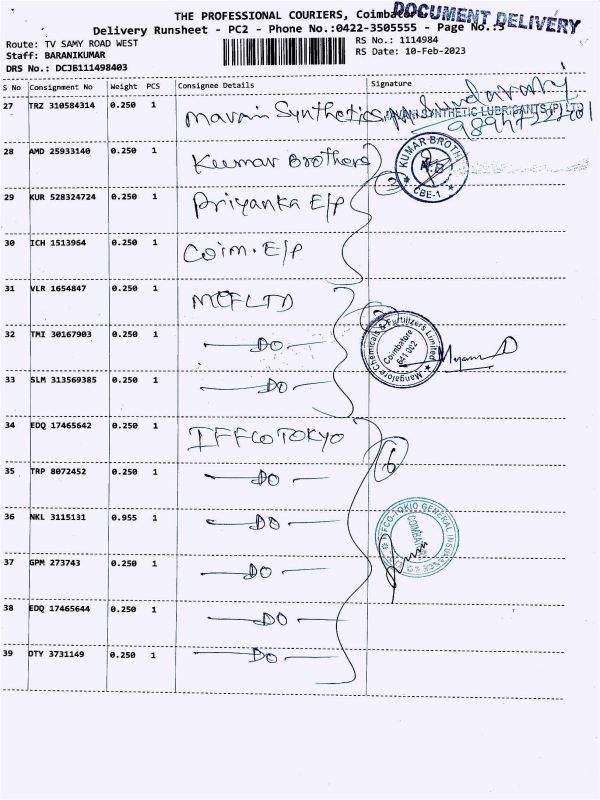 THE PROFESSIONAL COURIERS, Coimbatore
DOCUMENT DELIVERY
Delivery Runsheet - PC2 - Phone No.:0422-3505555 - Page No.:3
Route: TV SAMY ROAD WEST
RS No.: 1114984
Staff: BARANIKUMAR
RS Date: 10-Feb-2023
DRS No.: DCJB111498403
S No Consignment No Weight PCS Consignee Details Signature
27 TRZ 310584314 0.250 1 Mavain Synthetics
SYNTHETIC LUBRICANTS (P) LTD
28 AMD 25933140 0.250 1 Kumar Brothers
KUMAR BROTHERS
CBE-1
2
29 KUR 528324724 0.250 1 Priyanka E/P
30 ICH 1513964 0.250 1 Coim. E/P
31 VLR 1654847 0.250 1 MCFLTD
Mangalore Chemicals & Fertilizers Limited
Coimbatore
641 002
32 TMI 30167903 0.250 1 — DO —
33 SLM 313569385 0.250 1 — DO —
34 EDQ 17465642 0.250 1 IFFCO TOKYO
6
35 TRP 8072452 0.250 1 — DO —
36 NKL 3115131 0.955 1 — DO —
IFFCO-TOKIO GENERAL INSURANCE CO
COIMBATORE
37 GPM 273743 0.250 1 — DO —
38 EDQ 17465644 0.250 1 — DO —
39 DTY 3731149 0.250 1 — DO —